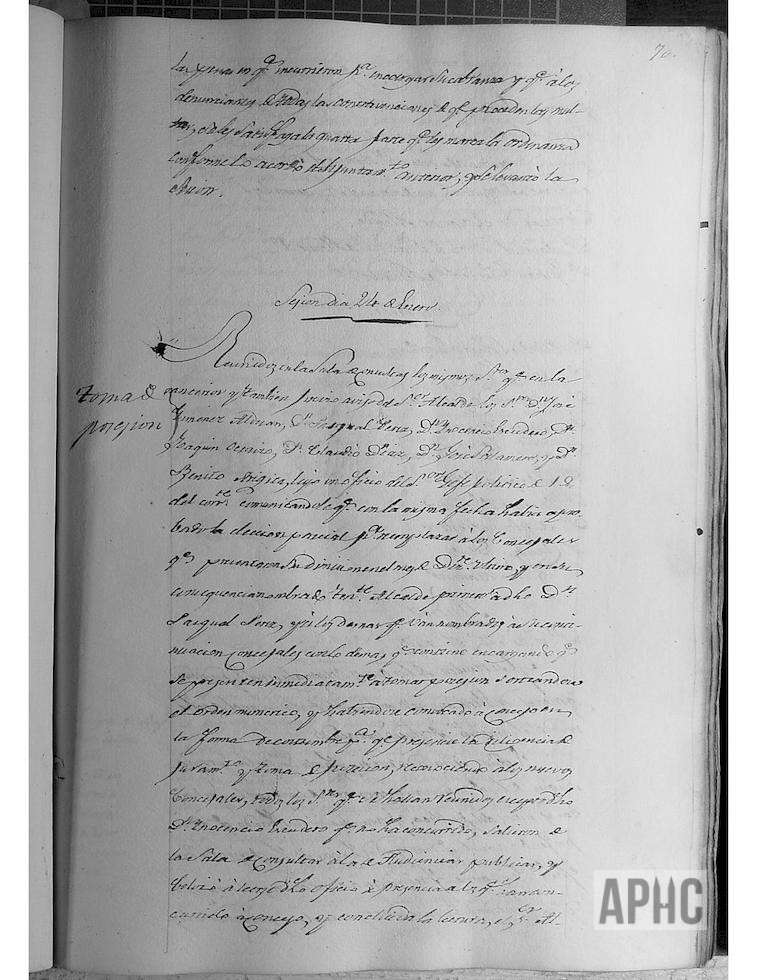 70.
las penas en q.e incurrieron p.r no otorgar su cobranza y q.e a los
denunciantes de todas las contravenciones de q.e proceden las mul-
tas, se les satisfaga la quarta parte q.e les marca la ordenanza
conforme lo acordó el Ayuntam.to anterior, y se levantó la
sesion.
Sesion dia 24 de Enero.
Reunidos en la Sala de consultas los mismos S.res q.e en la
anterior y tambien previo aviso del S.or Alcalde los S.res D.n José
toma de
posesion
Gimenez Alduan, D.n Pasqual Perez, D.n Inocencio Escudero, D.n
Joaquin D.n Claudio Diaz, D.n José y D.n
Benito se leyo un oficio del S.or Gefe politico de 19
del corr.te comunicando q.e con la misma fecha habia apro-
bado la eleccion parcial p.a reemplazar a los Concejales
q.e presentaron su dimision en el mes de D.re ultimo, y en su
consequencia nombrado ten.te Alcalde primero a dho D.n
Pasqual Perez, y a los demas q.e van nombrados a su conti-
nuacion concejales con lo demas q.e contiene encargando q.e
se presenten inmediatam.te a tomar posesion
el orden numerico, y habiendose convocado a concejo en
la forma de costumbre p.a q.e presencie la diligencia de
juram.to y toma de posesion, reconociendo a los nuevos
Concejales, todos los S.res q.e se hallan reunidos excepto dho
D.n Inocencio Escudero q.e no ha concurrido, salieron de
la Sala de consultas a la de Audiencias publicas, y
bolvió a leerse dho oficio a presencia de los q.e han con-
currido a concejo, y concluida la lectura, el S.or Al-
APHC